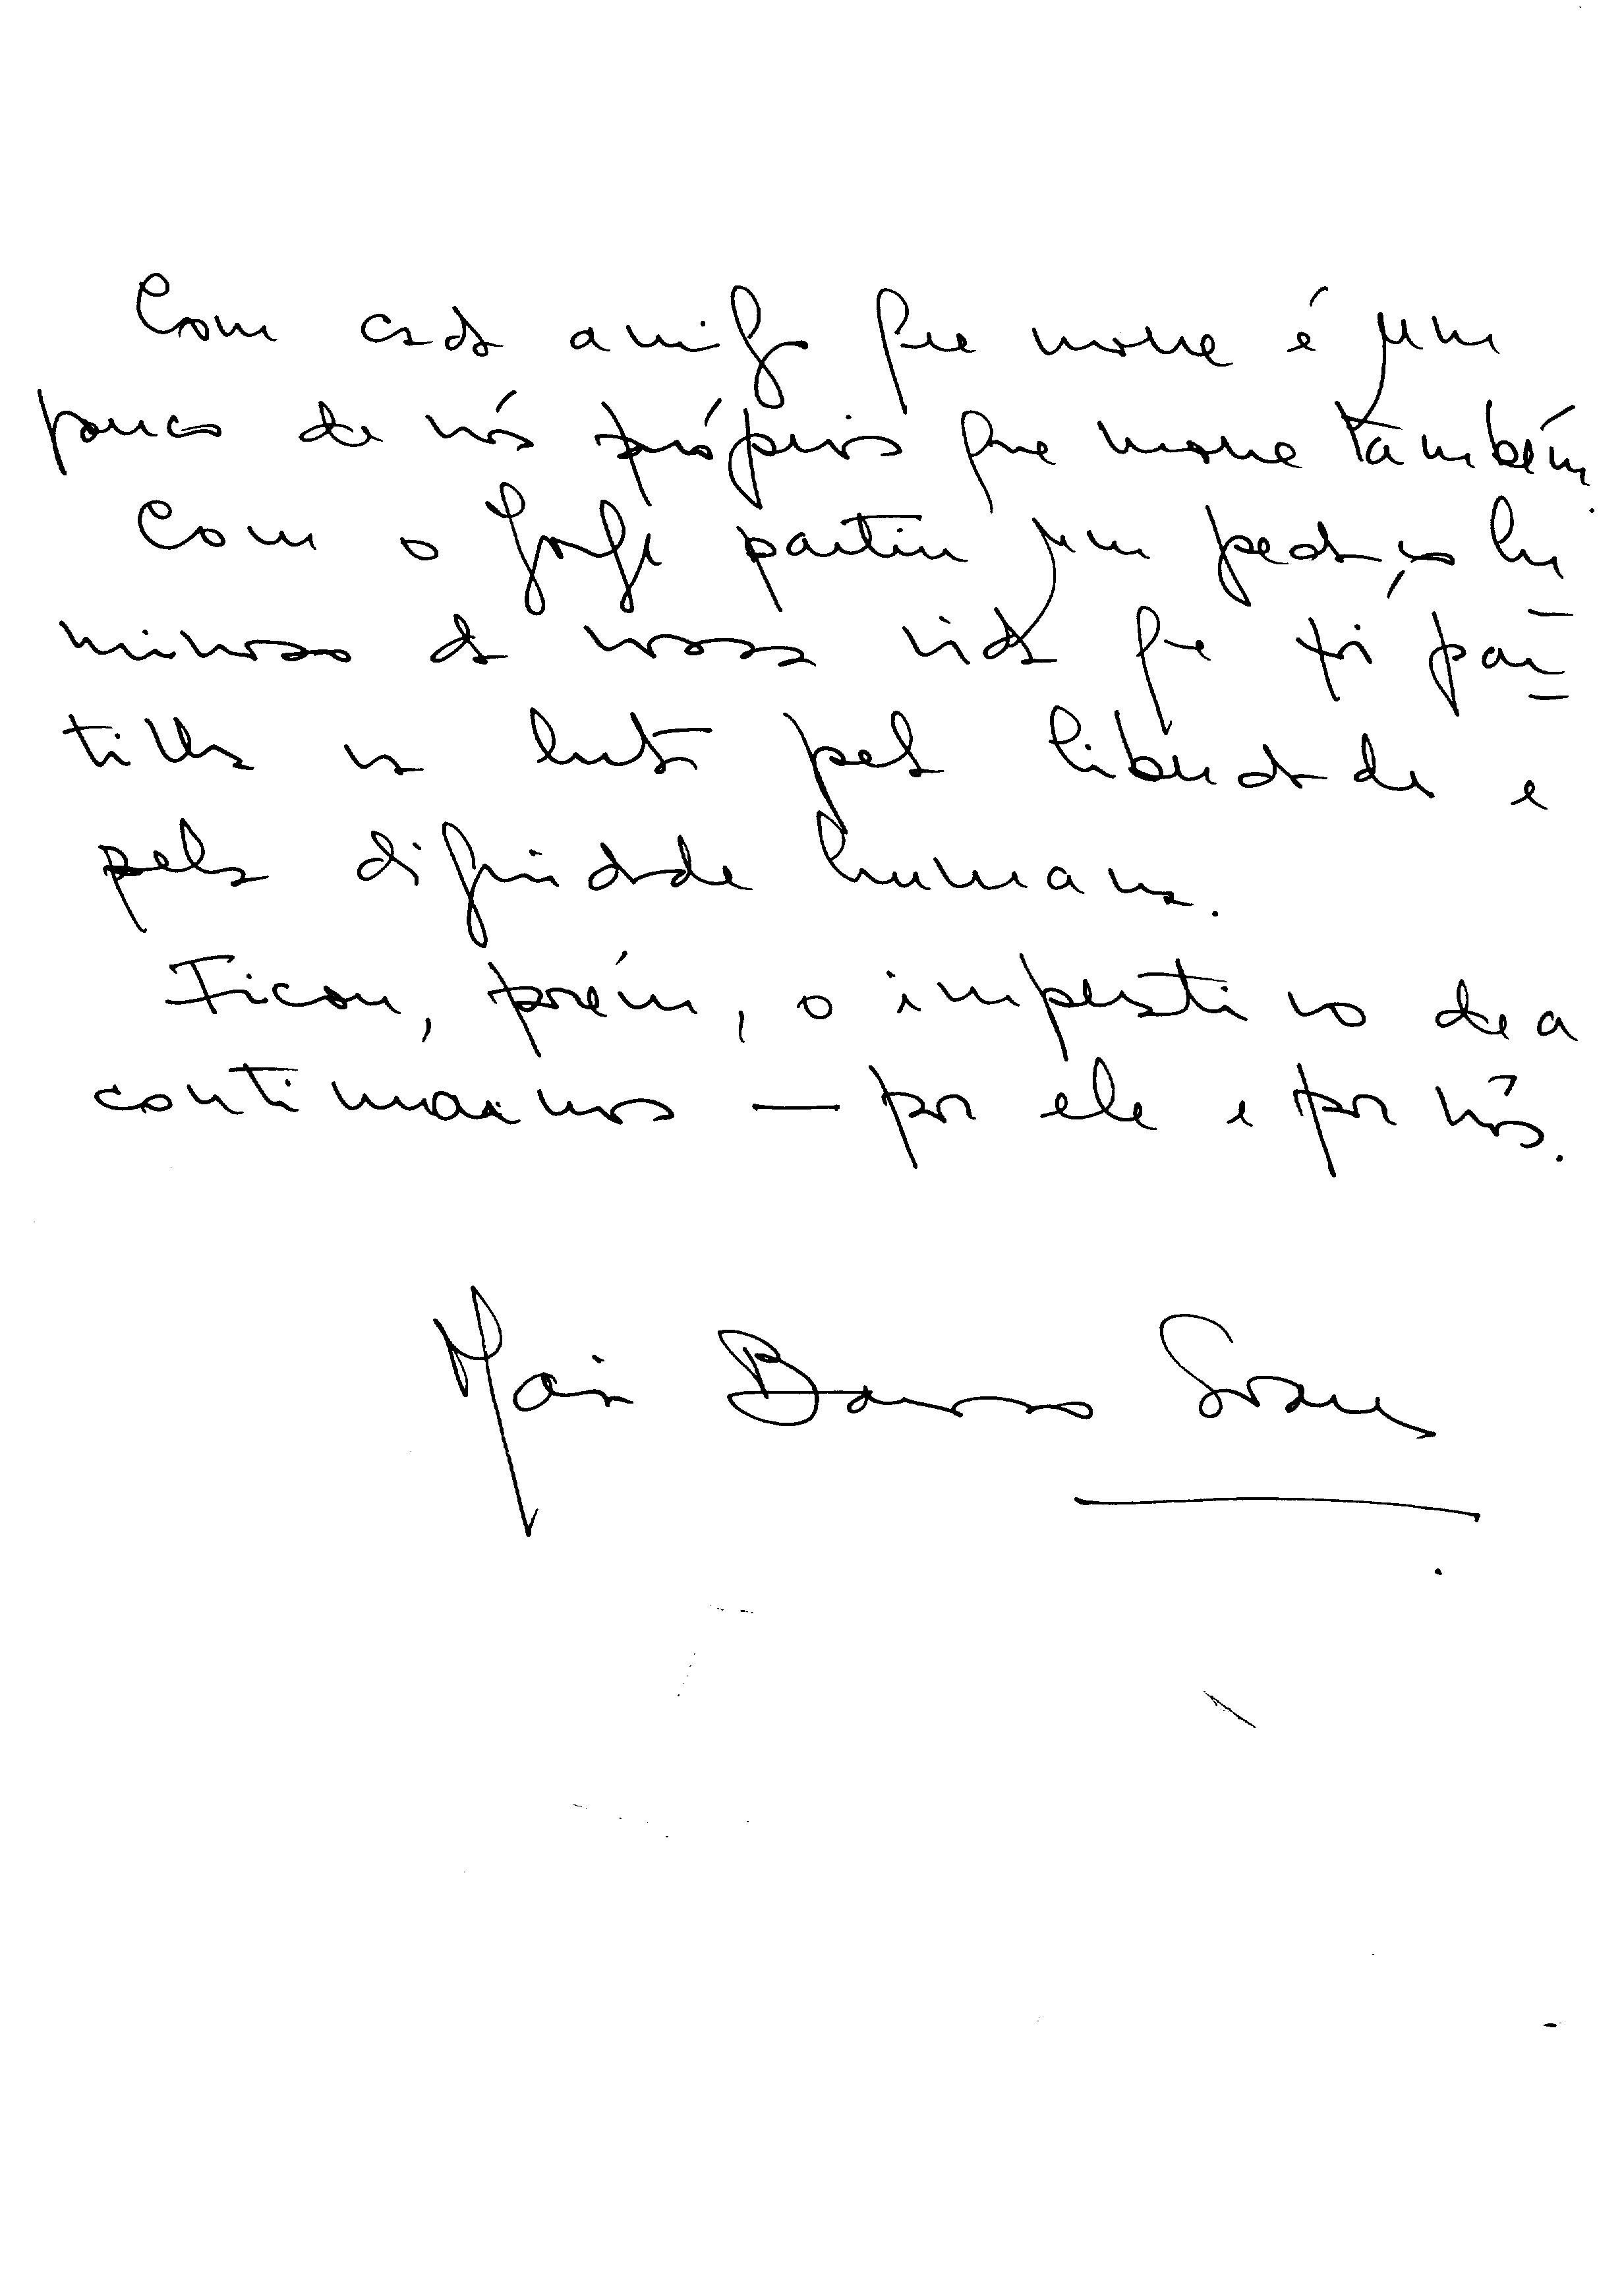 Com cada amigo que morre é um
pouco de nós próprios que morre também.
Com o Jorge partiu um pedaço lu
minoso da nossa vida que foi par=
tilha na luta pela liberdade e
pela dignidade humana.
Ficou, porém, o imperativo de a
continuarmos — por ele e por nós.
Maria Barroso Soares